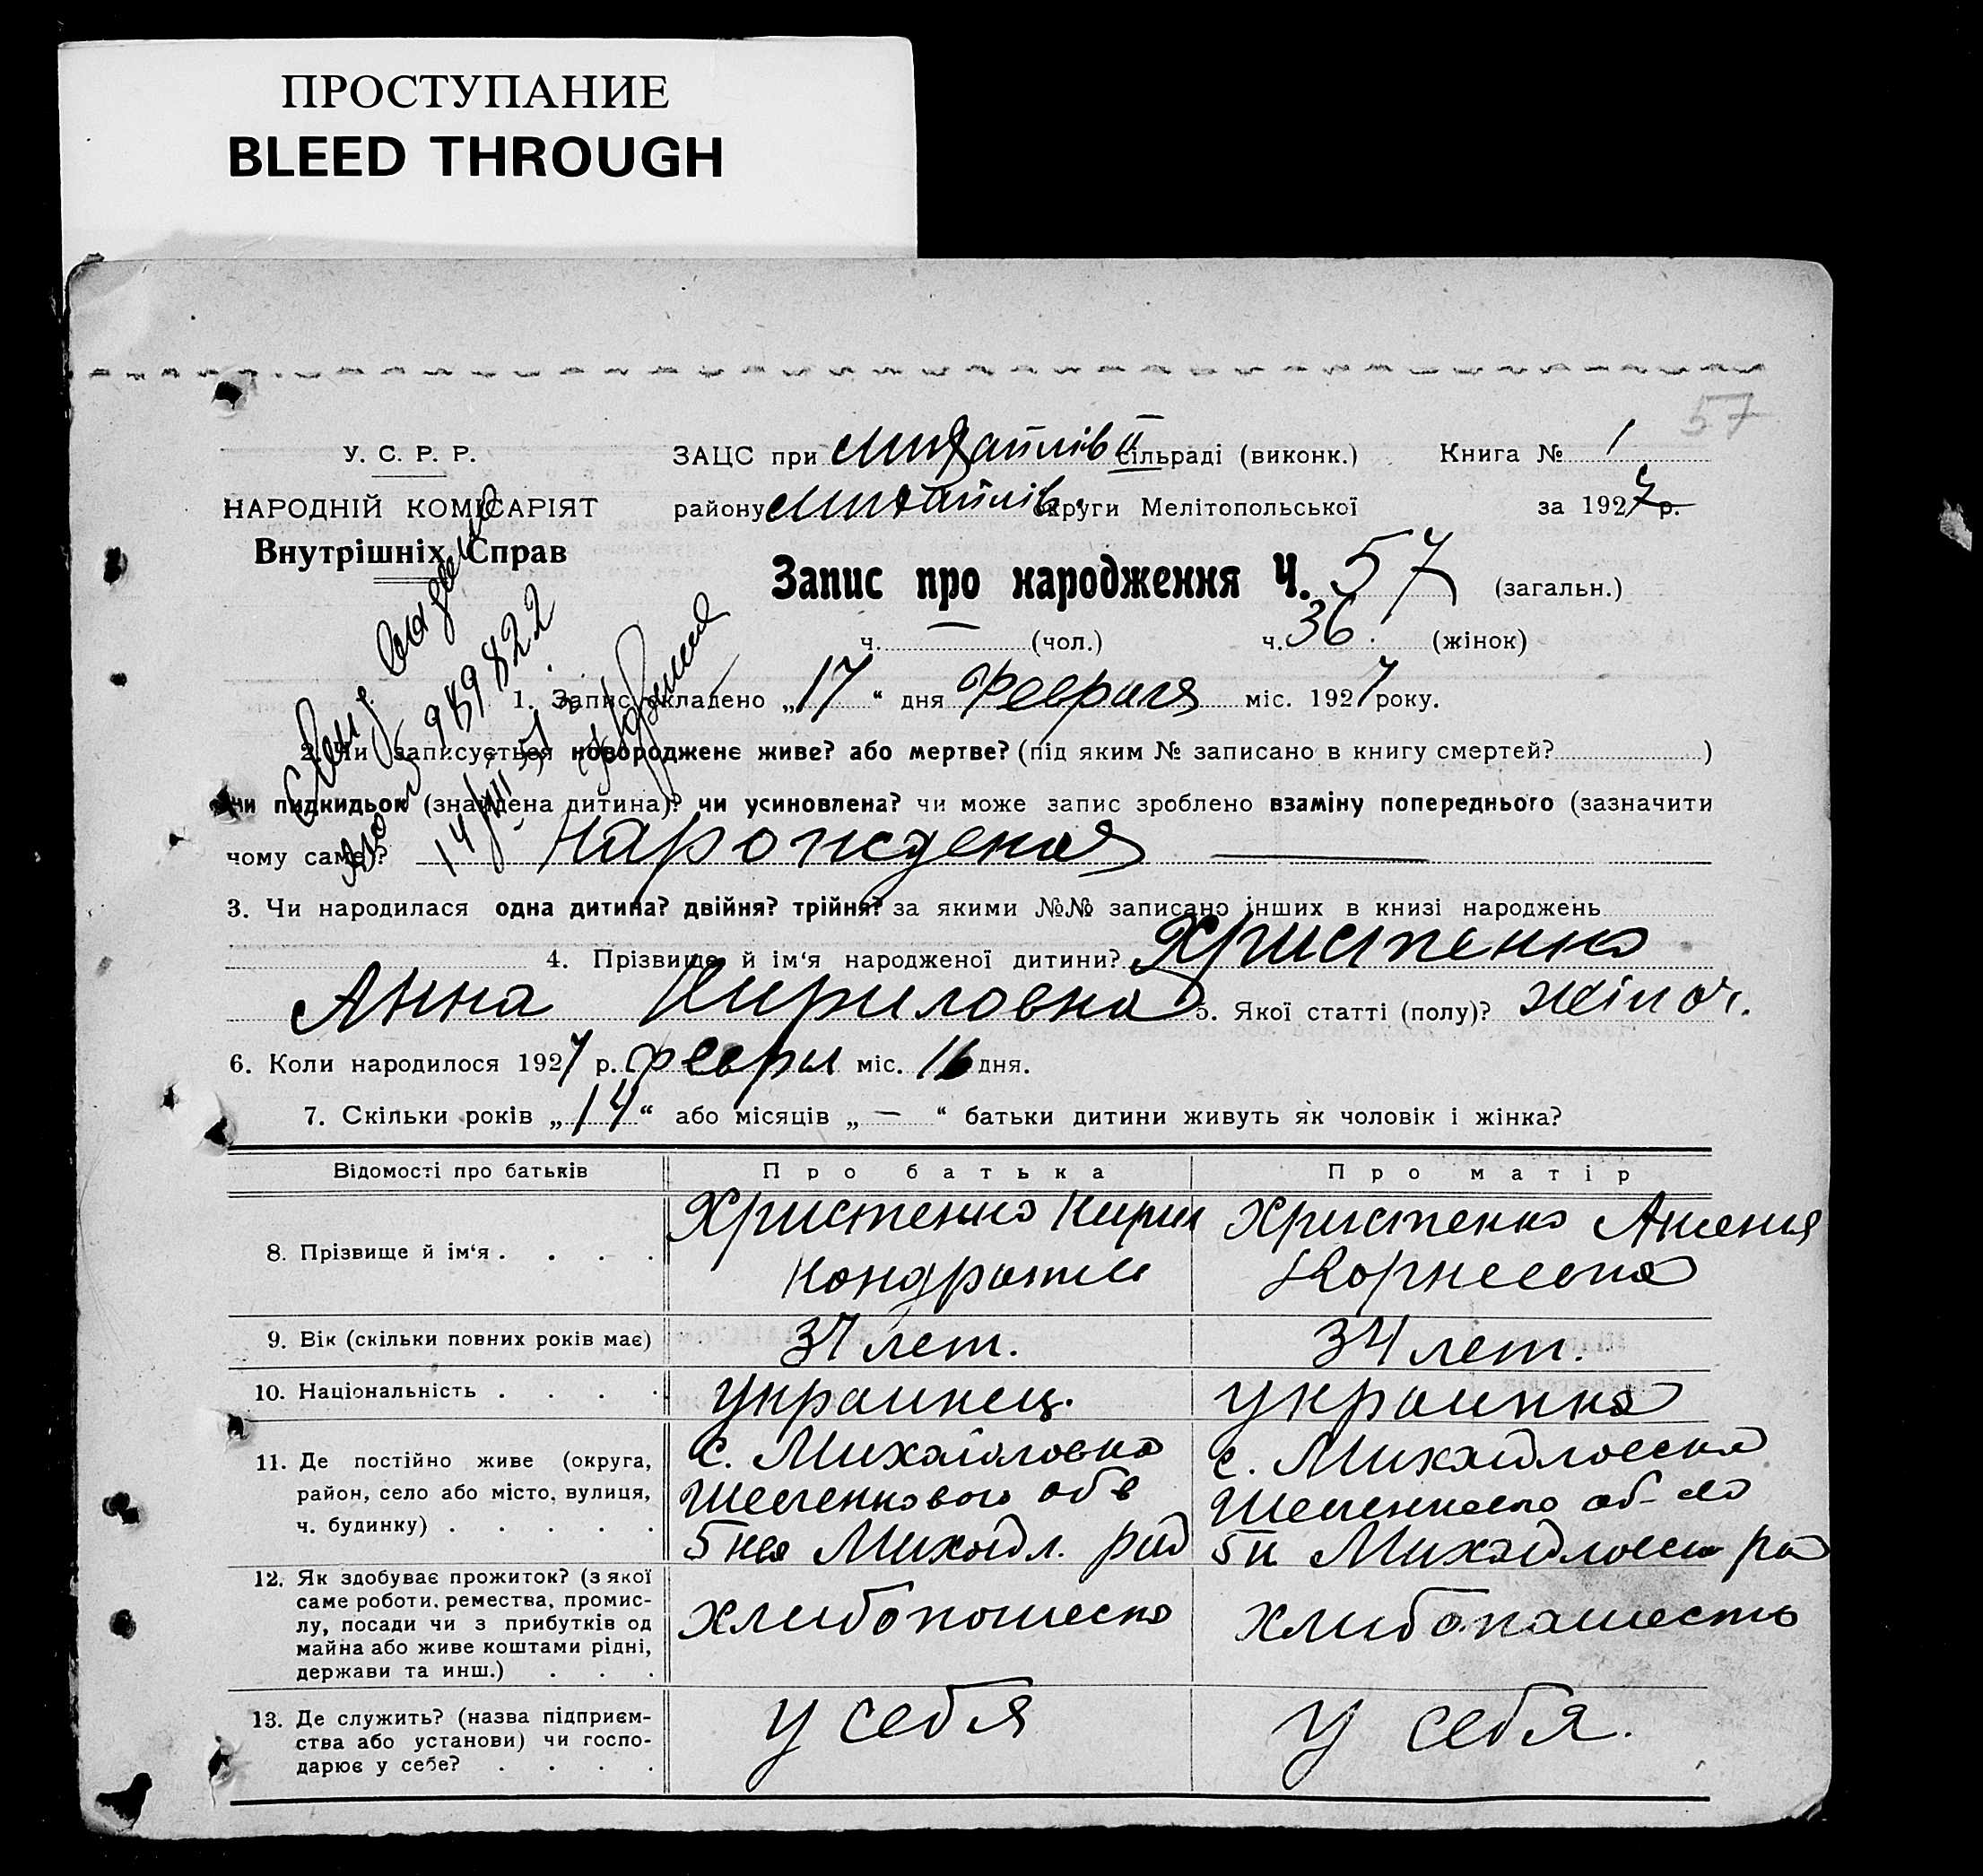 ПРОСТУПАНИЕ
BLEED THROUGH
57
У. С. Р. Р.
ЗАЦС при Михайлів II сільраді (виконк.) Книга № 1
НАРОДНІЙ КОМІСАРІЯТ
району Михайлів. округи Мелітопольської за 1927 р.
Внутрішніх Справ
Запис про народження Ч. 57 (загальн.)
ч. — (чол.) ч. 36. (жінок)
989822
1. Запис складено „17“ дня Февраля міс. 1927 року.
2. Чи записується новороджене живе? або мертве? (під яким № записано в книгу смертей? )
чи підкидьок (знайдена дитина)? чи усиновлена? чи може запис зроблено взаміну попереднього (зазначити
чому саме)? Нарождения —
3. Чи народилася одна дитина? двійня? трійня? за якими №№ записано інших в книзі народжень
4. Прізвище й ім‘я народженої дитини? Христенко
Анна Кириловна 5. Якої статті (полу)? жіноч.
6. Коли народилося 1927 р. феврл міс. 16 дня.
7. Скільки років „14“ або місяців „—“ батьки дитини живуть як чоловік і жінка?
Відомості про батьків Про батька Про матір
8. Прізвище й ім‘я . . . . Христенко Кирил Христенко Аксенья
Кондратьи Корнеевна
9. Вік (скільки повних років має) 37 лет. 34 лет.
10. Національність . . . . Украинец. Украинка
11. Де постійно живе (округа, с. Михайловка с. Михайловка
район, село або місто, вулиця,
ч. будинку) . . . . . Михайл.
12. Як здобуває прожиток? (з якої
саме роботи, ремества, промис-
лу, посади чи з прибутків од
майна або живе коштами рідні,
держави та инш.) . . .
13. Де служить? (назва підприєм- у себя у себя.
ства або установи) чи госпо-
дарює у себе? . . . .